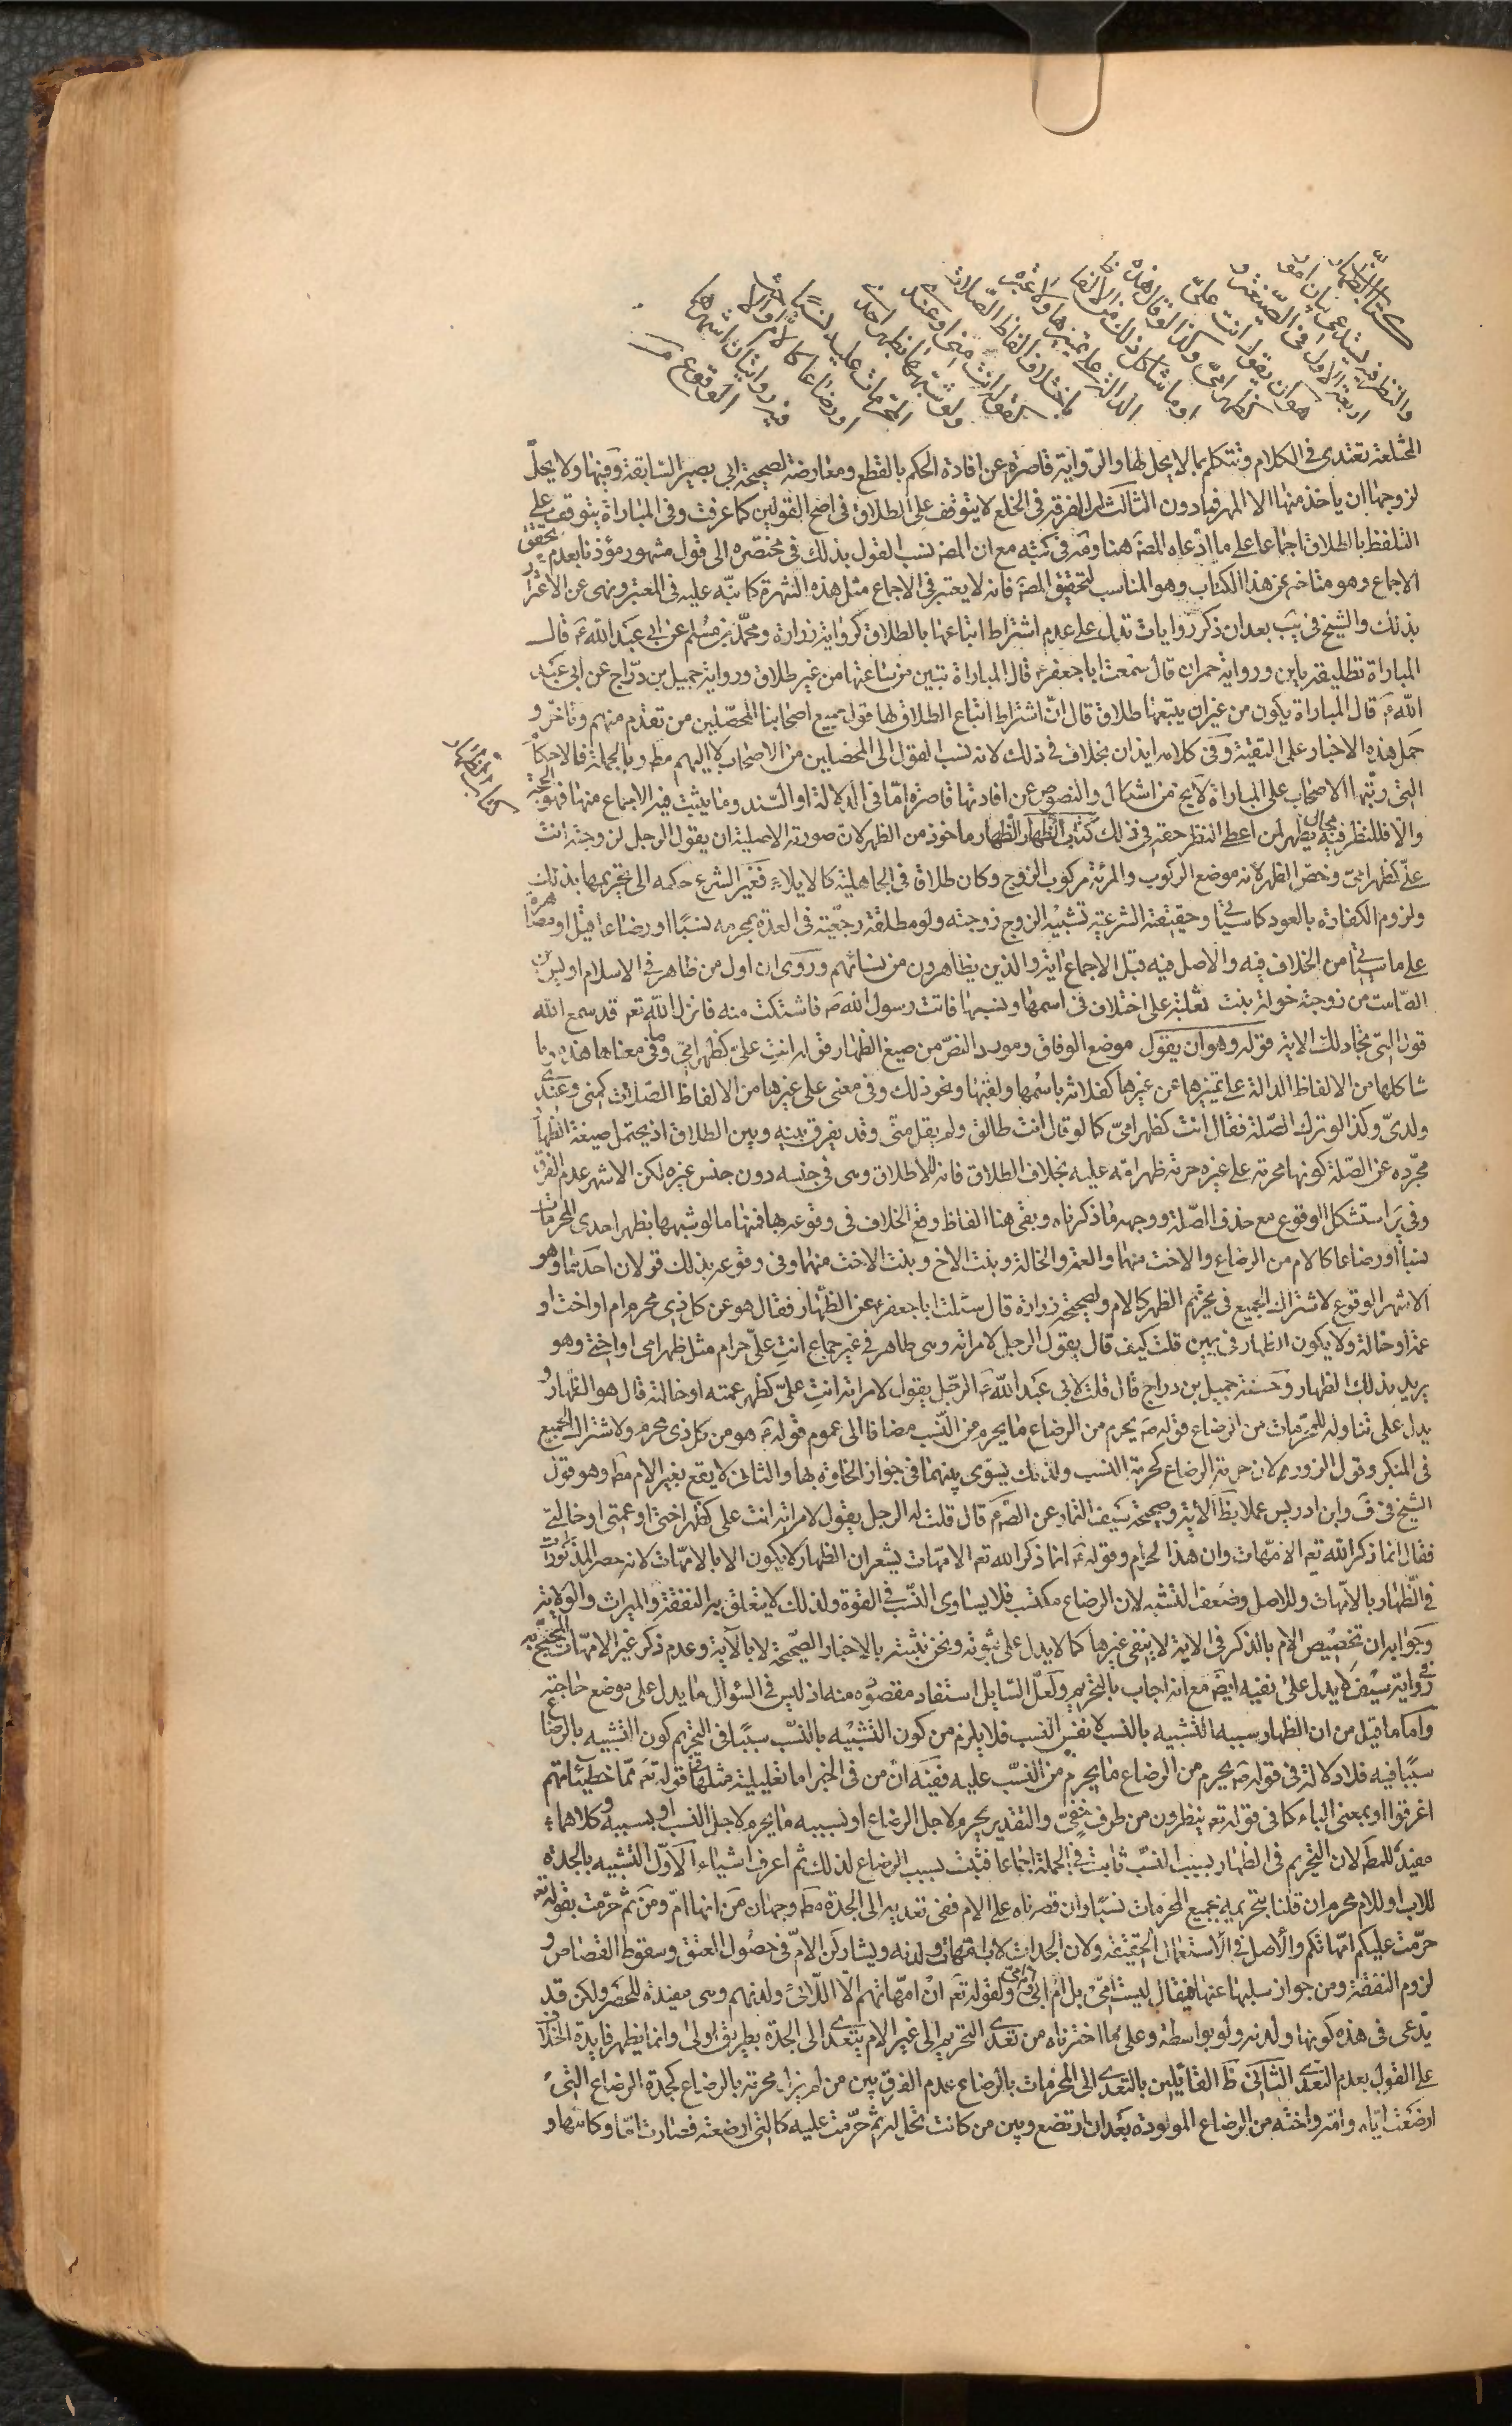 كتاب الظهار
والنظر فيه يستدعي بيان امور
اربعة الاول في الصيغة و
هو ان يقول انت علي
كظهر امي وكذا لو قال هذه
او ما شاكل ذلك من الالفاظ
الدالة على تميزها ولا عبرة
باختلاف الفاظ الصلات
كقوله انت مني او عندي
ولو شبهها بظهر احدى
المحرمات عليه نسبا
او رضاعا كالام والاخت
فيه روايتان اشهرهما
الوقوع
المختلعة تعتدي في الكلام وتتكلم بما لا يحل لها والرواية قاصرة عن افادة الحكم بالقطع ومعارضة لصحيحة ابي بصير السابقة وفيها ولا يحل
لزوجها ان ياخذ منها الا المهر فما دون الثالث ان الفرقة في الخلع لا يتوقف على الطلاق في اصح القولين كما عرفت وفي المباراة يتوقف على
التلفظ بالطلاق اجماعا على ما ادعاه المصه هنا وقه في كتبه مع ان المصه نسب القول بذلك في مختصره الى قول مشهور مؤذنا بعدم تحقق
الاجماع وهو متاخر عن هذا الكتاب وهو المناسب لتحقيق المصه فانه لا يعتبر في الاجماع مثل هذه الشهرة كما نبه عليه في المعتبر ونهى عن الاغترار
بذلك والشيخ في يب بعد ان ذكر روايات تدل على عدم اشتراط اتباعها بالطلاق كرواية زرارة ومحمد بن مسلم عن ابي عبد الله ع قال
المباراة تطليقة باين ورواية حمران قال سمعت ابا جعفر ع قال المباراة تبين من ساعتها من غير طلاق ورواية جميل بن دراج عن ابي عبد
الله ع قال المباراة يكون من غير ان يتبعها طلاق قال ان اشتراط اتباع الطلاق لها قول جميع اصحابنا المحصلين من تقدم منهم وتاخر و
حمل هذه الاخبار على التقية وفي كلامه ايذان بخلاف في ذلك لانه نسب القول الى المحصلين من الاصحاب لا اليهم مطه وبالجملة فالاحكام
التي رتبها الاصحاب على المباراة لا يخ من اشكال والنصوص عن افادتها قاصرة اما في الدلالة او السند وما يثبت فيه الاجماع منها فهو الحجة
كتاب الظهار
والا فللنظر فيه مجال يظهر لمن اعطى النظر حقه في ذلك كتاب الظهار الظهار ماخوذ من الظهر لان صورته الاصلية ان يقول الرجل لزوجته انت
علي كظهر امي وخص الظهر لانه موضع الركوب والمرئة مركوب الزوج وكان طلاقا في الجاهلية كالايلاء فغير الشرع حكمه الى تحريمها بذلك
ولزوم الكفارة بالعود كما سياتي وحقيقته الشرعية تشبيه الزوج زوجته ولو مطلقة رجعية في العدة بمحرمه نسبا او رضاعا قيل او مصاهرة
على ما سياتي من الخلاف فيه والاصل فيه قبل الاجماع اية والذين يظاهرون من نسائهم وروى ان اول من ظاهر في الاسلام اوس بن
الصامت من زوجته خولة بنت ثعلبة على اختلاف في اسمها ونسبها فاتت رسول الله ص فاشتكت منه فانزل الله تعه قد سمع الله
قول التي تجادلك الاية قوله وهو ان يقول موضع الوفاق ومورد النص من صيغ الظهار قوله انت علي كظهر امي وفي معناها هذه وما
شاكلها من الالفاظ الدالة على تميزها عن غيرها كفلانة باسمها ولقبها ونحو ذلك وفي معنى علي غيرها من الالفاظ الصلات كمني وعندي
ولدي وكذا لو ترك الصلة فقال انت كظهر امي كما لو قال انت طالق ولم يقل مني وقد يفرق بينه وبين الطلاق اذ يحتمل صيغة الظهار
مجرده عن الصلة كونها محرمة على غيره حرمة ظهر امه عليه بخلاف الطلاق فانه للاطلاق وهي في حبسه دون حبس غيره لكن الاشهر عدم الفرق
وفي ير استشكل الوقوع مع حذف الصلة ووجهه ما ذكرناه وبقي هنا الفاظ وقع الخلاف في وقوعه بها فمنها ما لو شبهها بظهر احدى المحرمات
نسبا او رضاعا كالام من الرضاع والاخت منهما والعمة والخالة وبنت الاخ وبنت الاخت منهما وفي وقوعه بذلك قولان احدهما وهو
الاشهر الوقوع لاشتراك الجميع في تحريم الظهر كالام ولصحيحة زرارة قال سئلت ابا جعفر ع عن الظهار فقال هو عن كل ذي محرم ام او اخت او
عمة او خالة ولا يكون الظهار في يمين قلت كيف قال يقول الرجل لامراته وهي طاهر في غير جماع انت علي حرام مثل ظهر امي او اختي وهو
يريد بذلك الظهار وحسنة جميل بن دراج قال قلت لابي عبد الله ع الرجل يقول لامراته انت علي كظهر عمته او خالته قال هو الظهار و
يدل على تناوله للمحرمات من الرضاع قوله ص يحرم من الرضاع ما يحرم من النسب مضافا الى عموم قوله ع هو من كل ذي محرم ولاشتراك الجميع
في المنكر وقول الزور ولان حرمة الرضاع كحرمة النسب ولذلك يسوى بينهما في جواز الخلوة بها والثاني لا يقع بغير الام مطه وهو قول
الشيخ في ف وابن ادريس عملا بظ الاية وصحيحة سيف التمار عن الصه ع قال قلت له الرجل يقول لامراته انت علي كظهر اختي او عمتي او خالتي
فقال انما ذكر الله تعه الامهات وان هذا لحرام وقوله ع انما ذكر الله تعه الامهات يشعر ان الظهار لا يكون الا بالامهات لانه حصر المذكورات
في الظهار بالامهات وللاصل وضعف التشبه لان الرضاع مكتسب فلا يساوى النسب في القوة ولذلك لا يتعلق به النفقة والميراث والولاية
وجوابه ان تخصيص الام بالذكر في الاية لا ينفي غيرها كما لا يدل على ثبوته ونحن نثبته بالاخبار الصحيحة لا بالاية وعدم ذكر غير الامهات المحتج به
في رواية سيف لا يدل على نفيه ايضه مع انه اجاب بالتحريم ولعل السايل استفاد مقصوده منه اذ ليس في السؤال ما يدل على موضع حاجته
واما ما قيل من ان الظهار سببه التشبيه بالنسب لا نفس النسب فلا يلزم من كون التشبيه بالنسب سببا في التحريم كون التشبيه بالرضاع
سببا فيه فلا دلالة في قوله ص يحرم من الرضاع ما يحرم من النسب عليه ففيه ان من في الخبر اما تعليلية مثلها في قوله تعه مما خطيئاتهم
اغرقوا او بمعنى الباء كما في قوله تعه ينظرون من طرف خفي والتقدير يحرم لاجل الرضاع او بسببه ما يحرم لاجل النسب او بسببه وكلاهما
مفيد للمطه لان التحريم في الظهار بسبب النسب ثابت في الجملة اجماعا فيثبت بسبب الرضاع لذلك ثم اعرف اشياء الاول التشبيه بالجدة
للاب او للام محرم ان قلنا بتحريمه بجميع المحرمات نسبا وان قصرناه على الام ففي تعديه الى الجدة مطه وجهان من انها ام ومن ثم حرمت بقوله تعه
حرمت عليكم امهاتكم والاصل في الاستعمال الحقيقة ولان الجدات لاب امهات ولدنه ويشاركن الام في حصول العتق وسقوط القصاص و
لزوم النفقة ومن جواز سلبها عنها فيقال ليست امي بل ام ابي او امي ولقوله تعه ان امهاتهم الا اللائي ولدنهم وهي مفيدة للحصر ولكن قد
يدعى في هذه كونها ولدنه ولو بواسطة وعلى ما اخترناه من تعدي التحريم الى غير الام يتعدى الى الجدة بطريق اولى وانما يظهر فايدة الخلاف
على القول بعدم التعدي الثاني ظ القائلين بالتعدي الى المحرمات بالرضاع عدم الفرق بين من لم يزل محرمة بالرضاع كجدة الرضاع التي
ارضعت اباه وامه واخته من الرضاع المولودة بعد ان ارتضع وبين من كانت تحل له ثم حرمت عليه كالتي ارضعته فصارت اما وكامها و